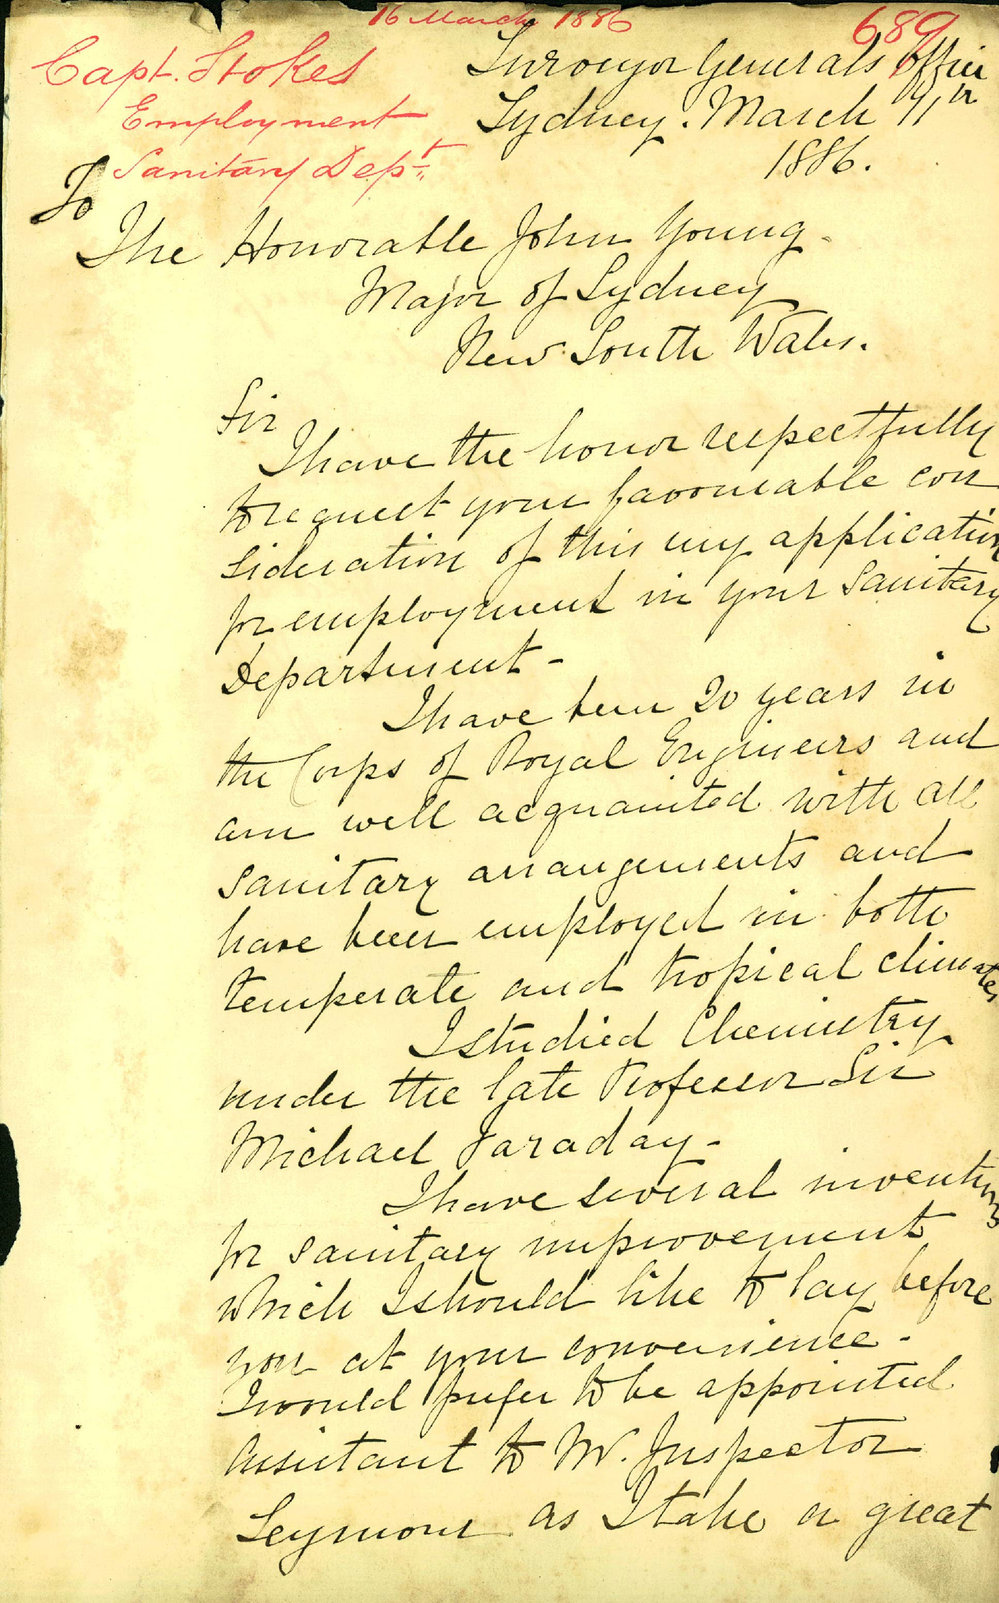 16 March 1886
689
Capt. Stokes
Employment
Sanitary Dept.
Surveyor Generals Office
Sydney. March 11th
1886.
To
The Honorable John Young.
Major of Sydney
New South Wales.
Sir
I have the honor respectfully
to request your favourable con
sideration of this my application
for employment in your Sanitary
Department -
I have been 20 years in
the Corps of Royal Engineers and
am well acquainted with all
sanitary arrangements and
have been employed in both
temperate and tropical climates
I studied Chemistry
under the late Professor Sir
Michael Faraday -
I have several inventions
for sanitary improvement
which I should like to lay before
you at your convenience -
I would prefer to be appointed
Assistant to Mr. Inspector
Seymour as I take a great